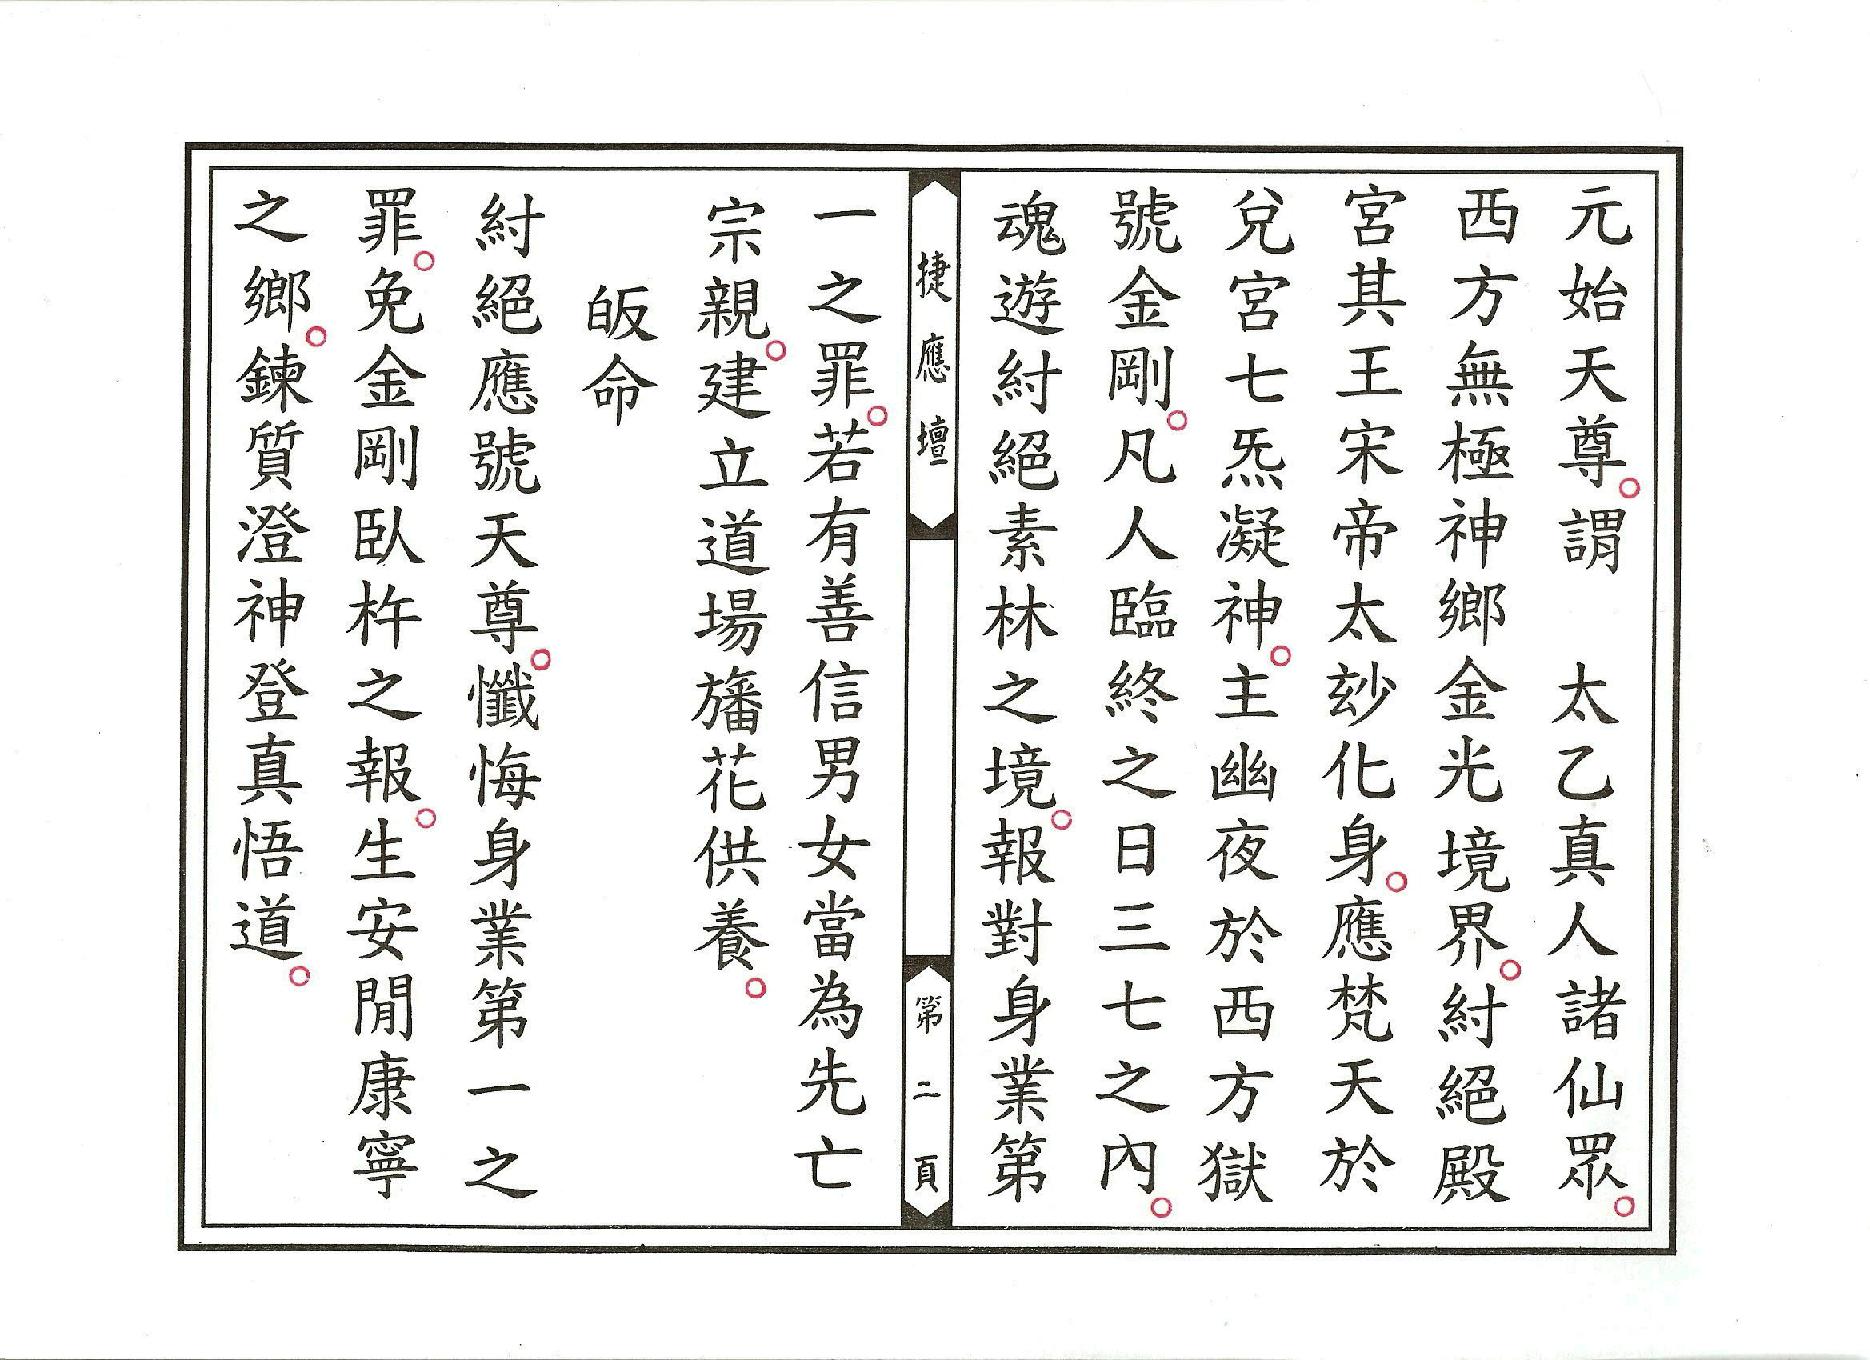 元始天尊。謂　太乙真人諸仙眾。
西方無極神鄉金光境界。紂絕殿
宮其王宋帝太玅化身。應梵天於
兌宮七炁凝神。主幽夜於西方獄
號金剛。凡人臨終之日三七之內。
魂遊紂絕素林之境。報對身業第
捷應壇
第二頁
一之罪。若有善信男女當為先亡
宗親。建立道場旛花供養。
皈命
紂絕應號天尊。懺悔身業第一之
罪。免金剛臥杵之報。生安閒康寧
之鄉。鍊質澄神登真悟道。